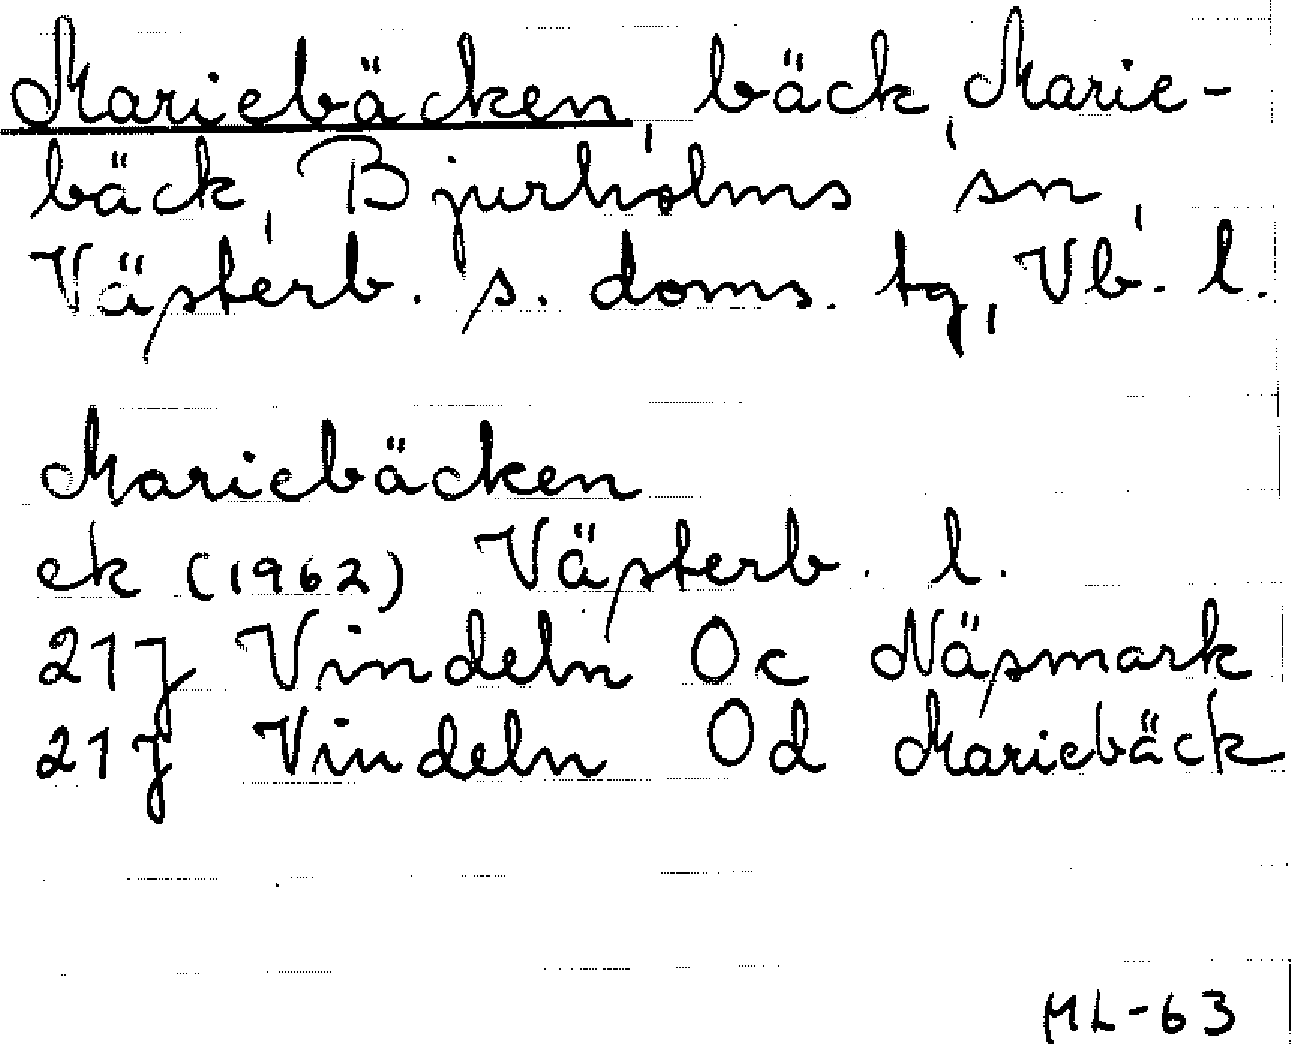 Mariebäcken, bäck, Marie-
bäck, Bjurholms sn,
Västerb. s. doms. tg, Vb. l.
Mariebäcken
ek (1962) Västerb. l.
21J Vindeln Oc Näsmark
21J Vindeln Od Mariebäck
ML-63